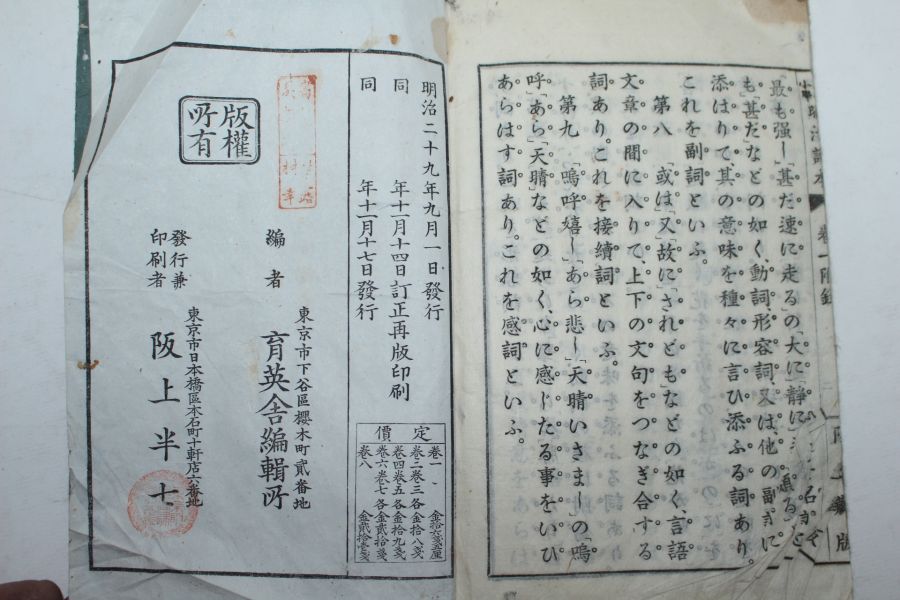 最も强し」「甚だ速に走る」の「大に」「静に」
も」「甚だ」などの如く、動詞形容詞、又は、他の副詞に
添はりて、其の意味を種々に言ひ添ふる詞あり。
これを副詞といふ。
第八 「或は」「又」「故に」「されども」などの如く、言語
文章の間に入りて上下の文句をつなぎ合する
詞あり。これを接續詞といふ。
第九 「嗚呼嬉し」「あら悲し」「天晴いさまし」の「嗚
呼」「あら」「天晴」などの如く、心に感じたる事をいひ
あらはす詞あり。これを感詞といふ。
明治二十九年九月一日發行
同 年十一月十四日訂正再版印刷
同 年十一月十七日發行
定價
卷一 金拾六錢五厘
卷二卷三各金拾八錢
卷四卷五各金拾九錢
卷六卷七各金貳拾錢
卷八 金貳拾壹錢
版權
所有
編者
東京市下谷區櫻木町貳番地
育英舎編輯所
發行兼
印刷者
東京市日本橋區本石町十軒店六番地
阪上半七